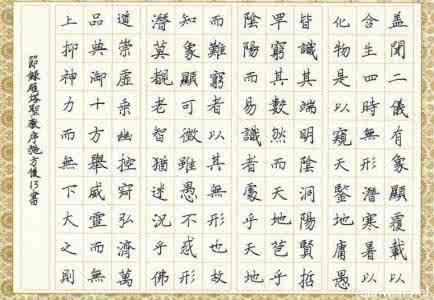 盖聞二儀有象顯覆載以
含生四時無形潛寒暑以
化物是以窺天鑒地庸愚
皆識其端明陰洞陽賢哲
罕窮其數然而天地苞乎
陰陽而易識者處乎天地
而難窮者以其無形也故
知象顯可徵雖愚不惑形
潛莫覩老智猶迷況乎佛
道崇虛乘幽控寂弘濟萬
品典御十方舉威靈而無
上抑神力而無下大之則
節錄雁塔聖教序施方俊13書